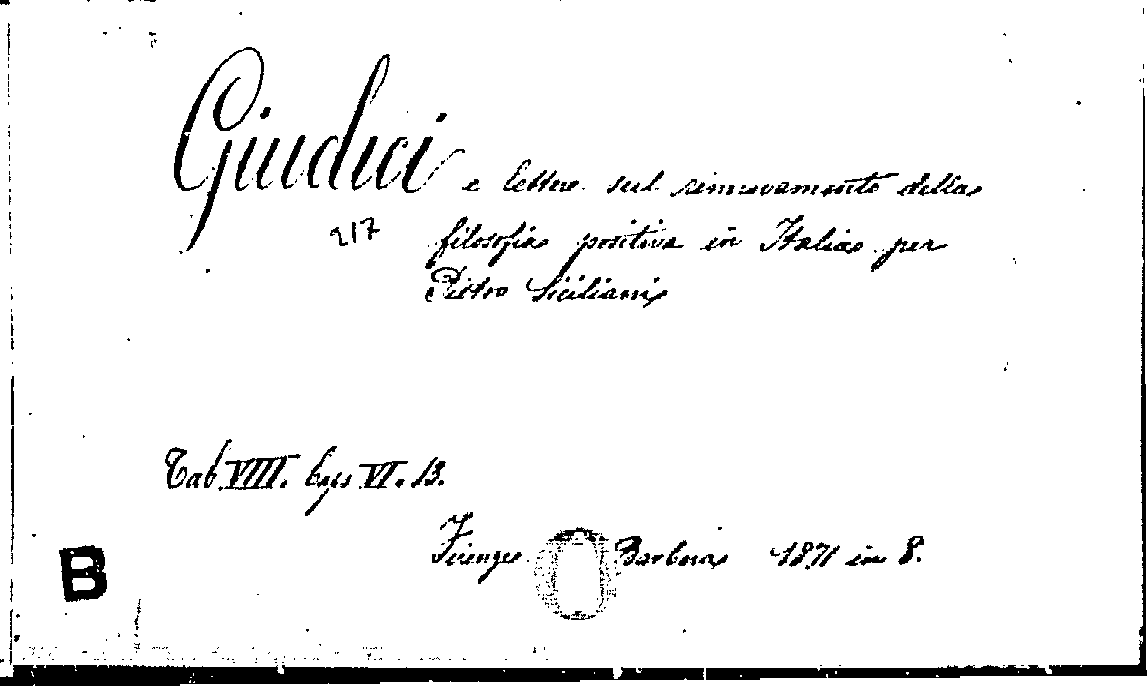 Giudici e lettere sul rinnovamento della
217 filosofia positiva in Italia per
Pietro Siciliani
Tab VIII. Caps VI. 13.
Firenze Barbera 1871 in 8.
B